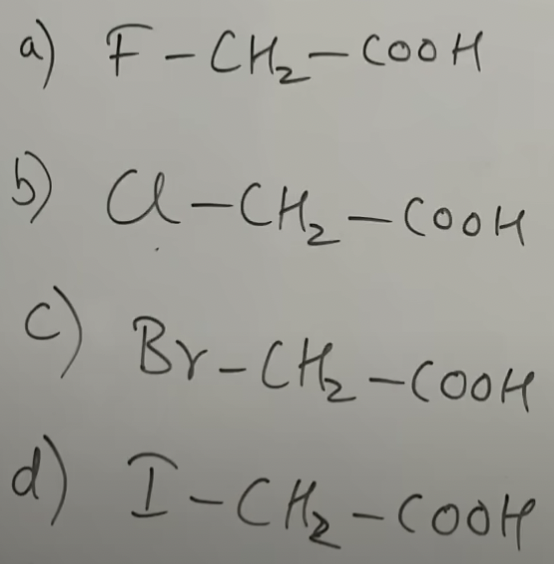 a) F-CH₂-COOH
b) Cl-CH₂-COOH
c) Br-CH₂-COOH
d) I-CH₂-COOH